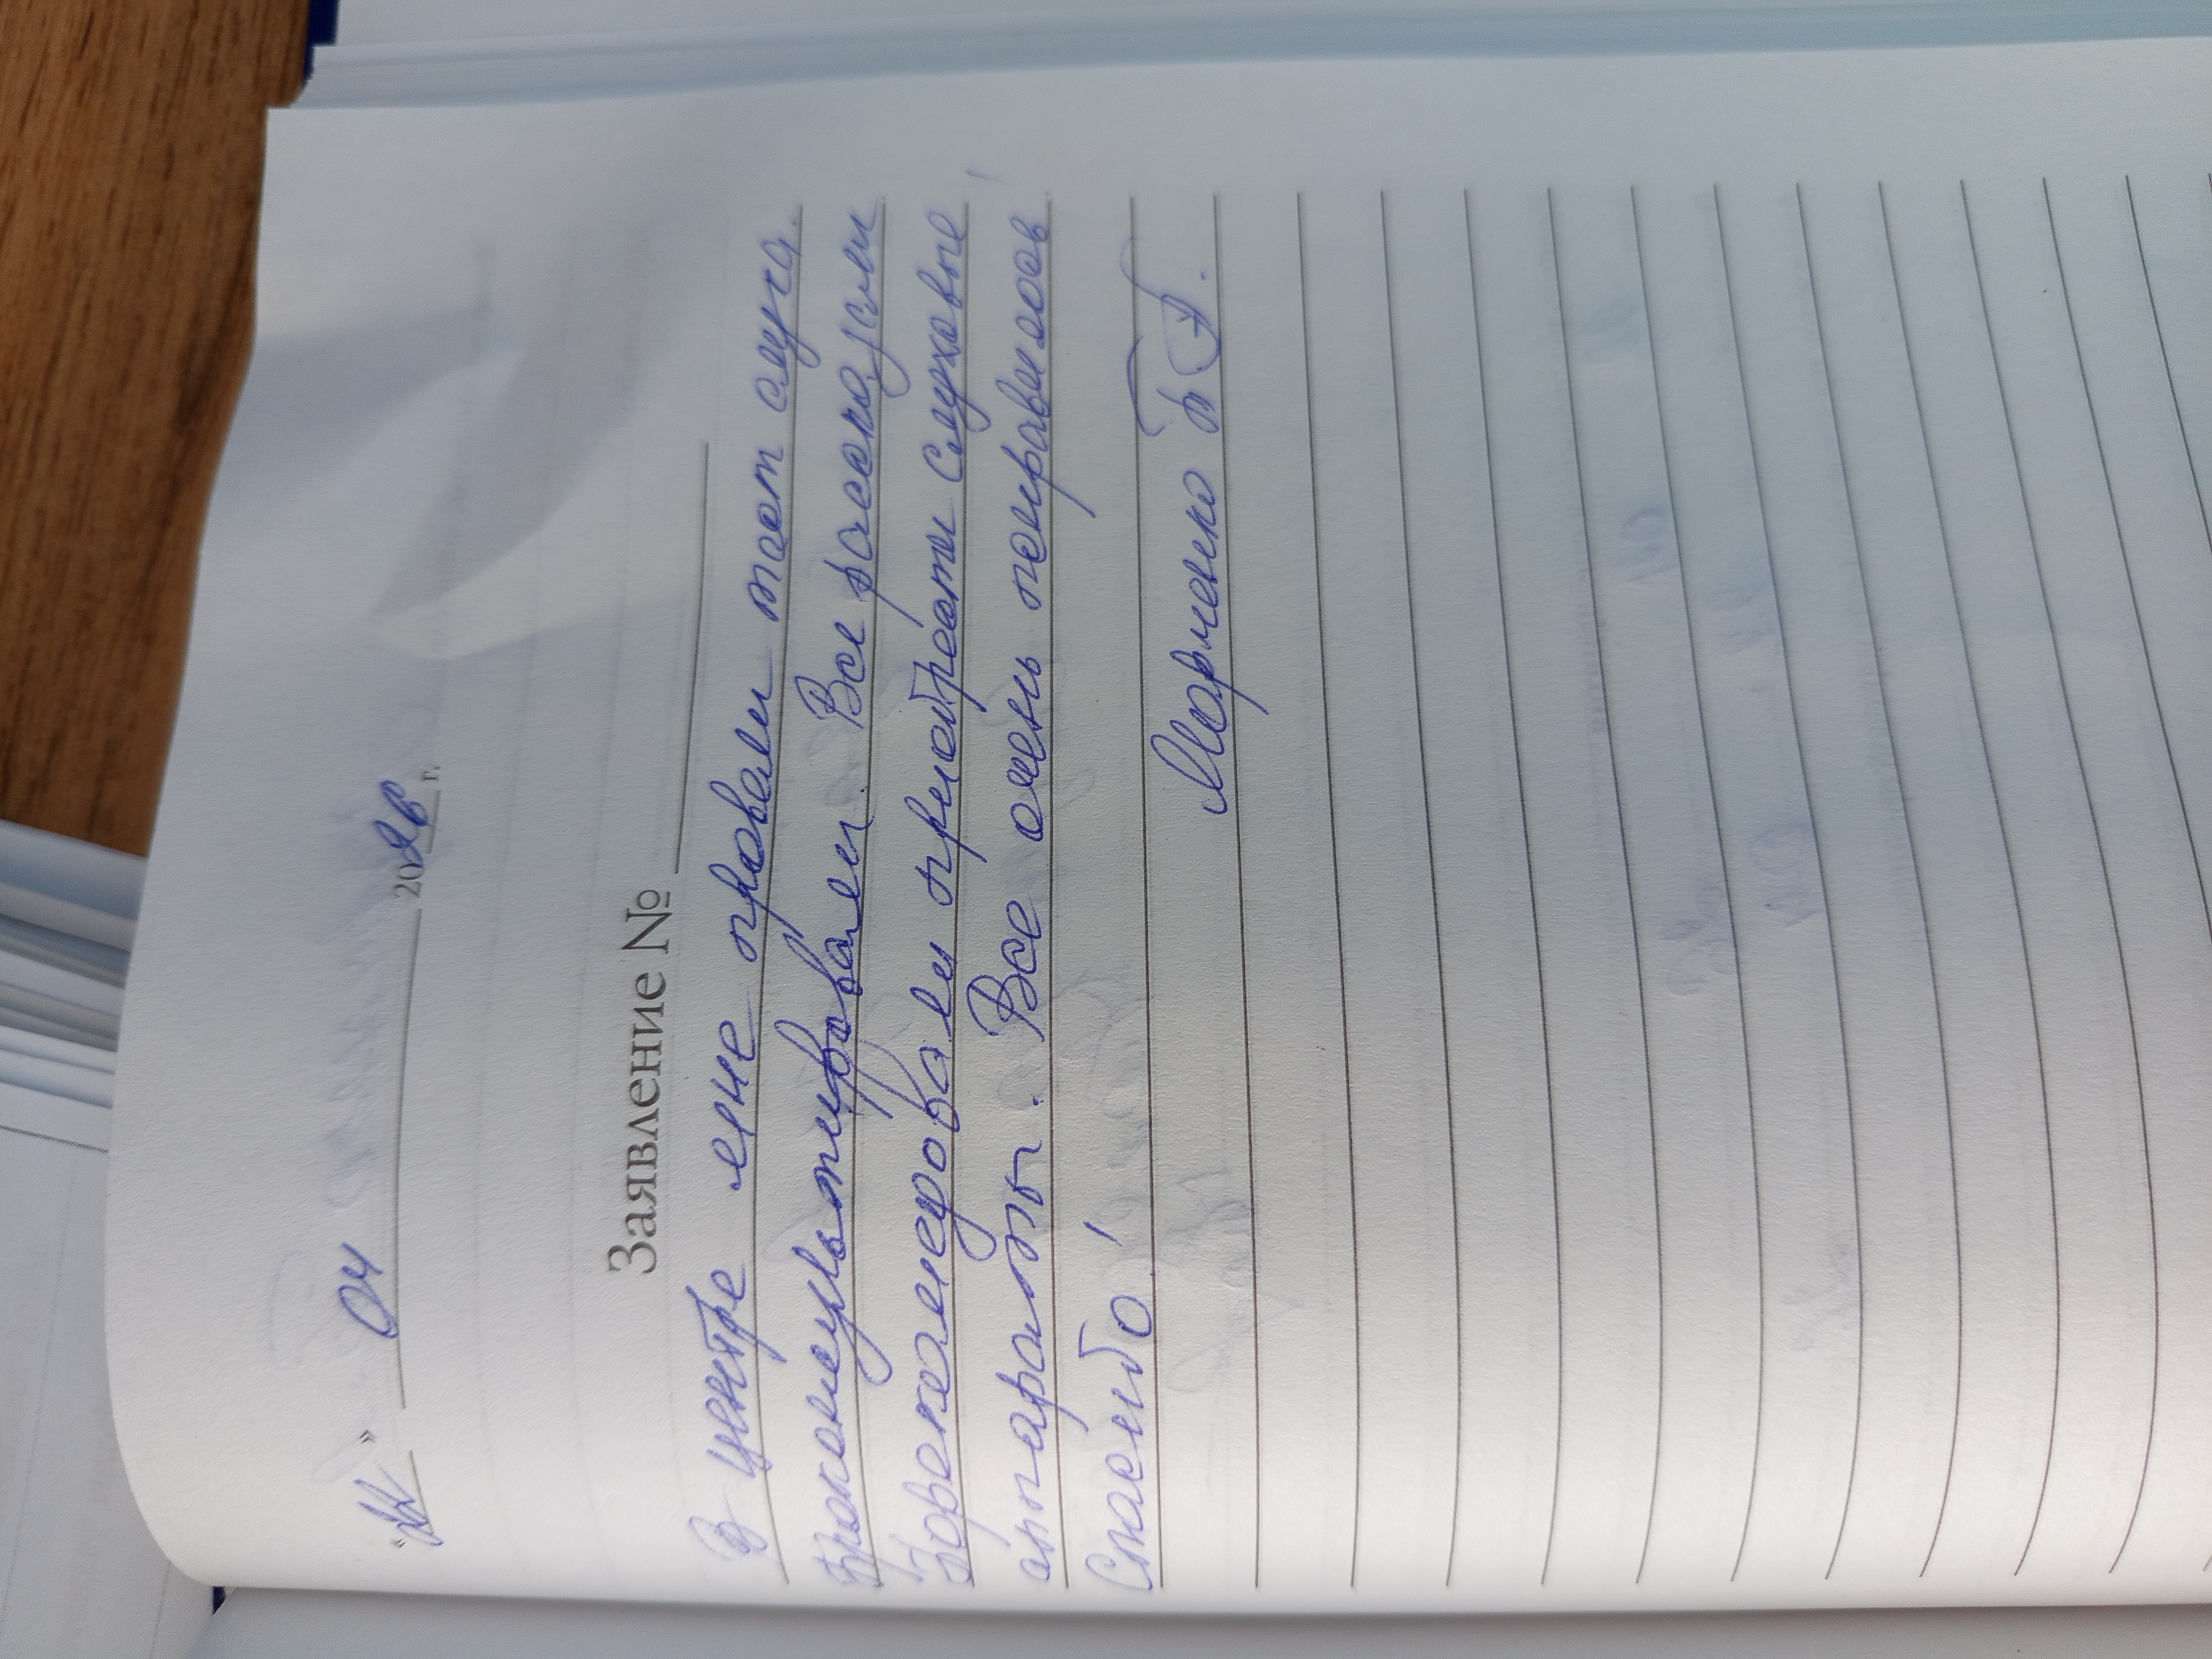 " " 04 2026 г.
Заявление №
В центре мне провели тест слуха.
проконсультировали. Все рассказали
Порекомендовали приобрести слуховые
аппараты. Все очень понравилось!
Спасибо!
Марченко